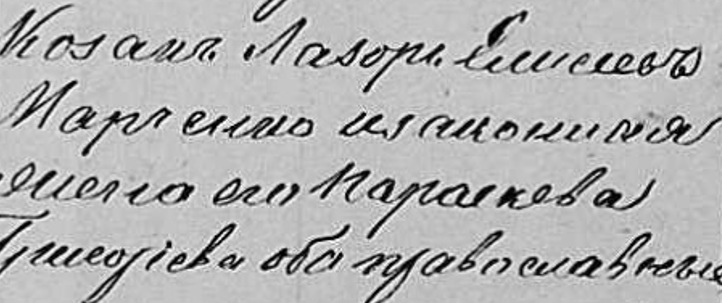 Козакъ Лазорь Елисеевъ
Марченко и законная
жена его Параскева
Григоріева оба православные